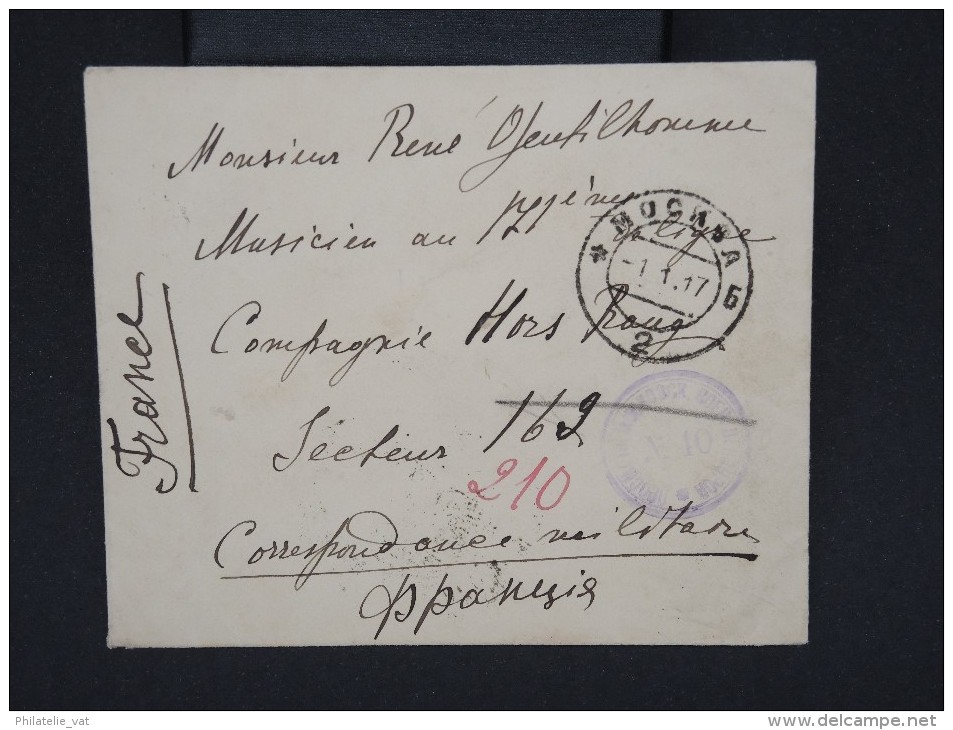 Monsieur René Gentilhomme
Musicien au 171ème de ligne
Compagnie Hors Rang
Secteur 162
210
Correspondance militaire
Франція
France
МОСКВА Б
-1.1.17
2
№ 10
Philatelie_vat
www.delcampe.net